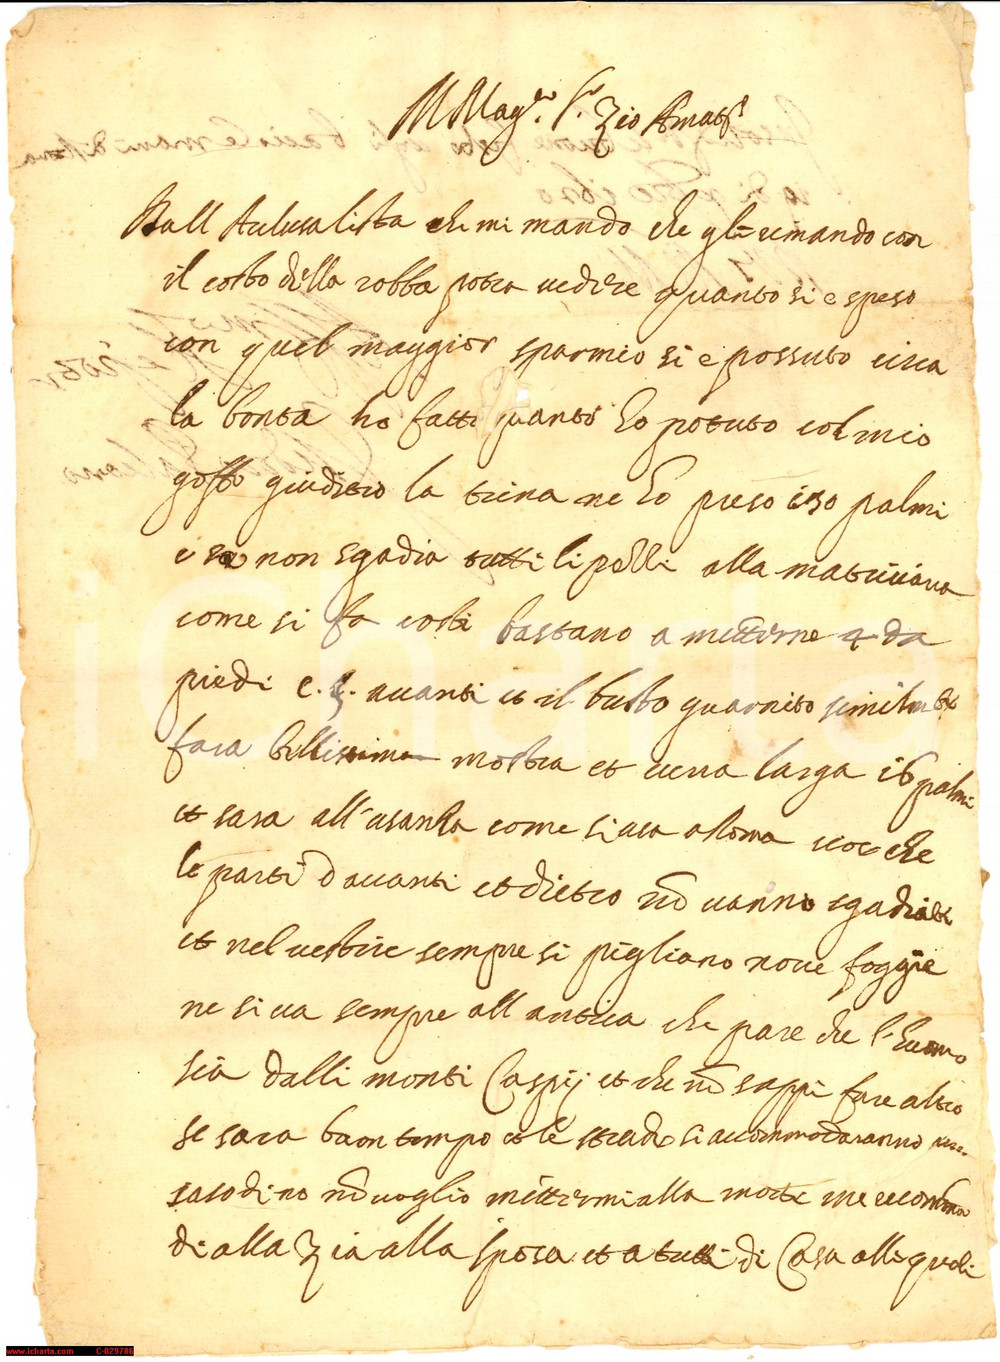 Mag.co S.r Zio Amat.mo
Dall che mi mando che gli rimando con
il costo della robba potra vedere quanto si e speso
con quel maggior sparmio si e possuto circa
la bonta ho fatto quanto ho potuto col mio
goffo giuditio la trina ne ho preso 130 palmi
e non sgadia tutti li pelli alla
come si fa costi bastano a metterne 4 da
piedi e. 3. avanti et il busto guarnito similmte
fara bellissima mostra et verra larga 16 palmi
et sara all'usanza come si usa a Roma cioe che
le parti d avanti et dietro nō vanno sgadiate
et nel vestire sempre si pigliano nove foggie
ne si va sempre all antica che pare che l'huomo
sia dalli monti Caspij et che nō sappi fare altro
se sara buon tempo et le strade si accommodaranno
saro di no nō voglio mettermi alla morte me recoman
di alla Zia alla sposa et a tutti di Casa alli quali
www.icharta.com C-029786